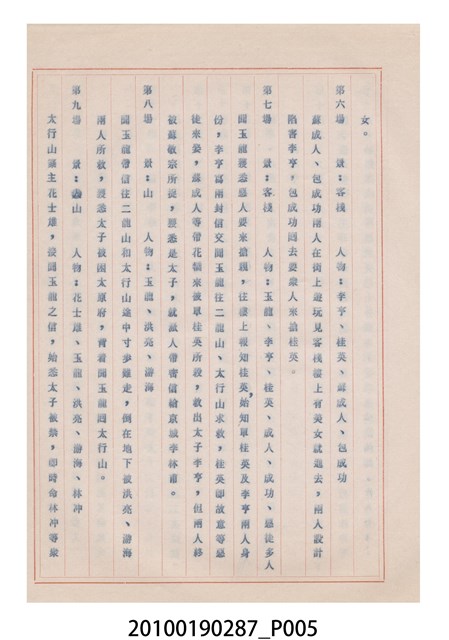 女。
第六場　景：客棧　人物：李亨、桂英、蘇成人、包成功
蘇成人、包成功兩人在街上遊玩見客棧樓上有美女就過去，兩人設計
陷害李亨，包成功回去要衆人來搶桂英。
第七場　景：客棧　人物：玉龍、李亨、桂英、成人、成功、惡徒多人
聞玉龍獲悉惡人要來搶親，往樓上報知桂英，始知單桂英及李亨兩人身
份，李亨寫兩封信交聞玉龍往二龍山、太行山求救，桂英即故意等惡
徒來娶，蘇成人等帶花轎來被單桂英所殺，救出太子李亨，但兩人終
被蘇敬宗所捉，獲悉是太子，就派人帶密信給京城李林甫。
第八場　景：山　人物：玉龍、洪亮、游海
聞玉龍帶信往二龍山和太行山途中寸步難走，倒在地下被洪亮、游海
兩人所救，獲悉太子被困太原府，背着聞玉龍回太行山。
第九場　景：山　人物：花士雄、玉龍、洪亮、游海、林冲
太行山寨主花士雄，接聞玉龍之信，始悉太子被禁，即時命林冲等衆
20100190287_P005